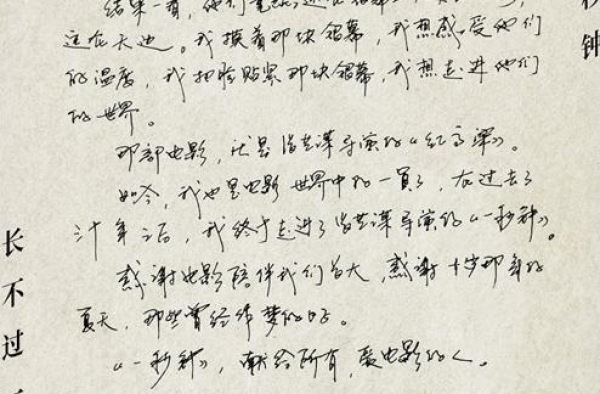 这么大边。我摸着那块银幕，我想感受他们
的温度，我把脸贴紧那块银幕，我想走进他们
的世界。
那部电影，就是张艺谋导演的《红高粱》。
如今，我也是电影世界中的一员了，在过去了
三十年之后，我终于走进了张艺谋导演的《一秒钟》。
感谢电影陪伴我们长大，感谢十岁那年的
夏天，那些曾经作梦的日子。
《一秒钟》，献给所有，爱电影的人。
长不过
秒钟